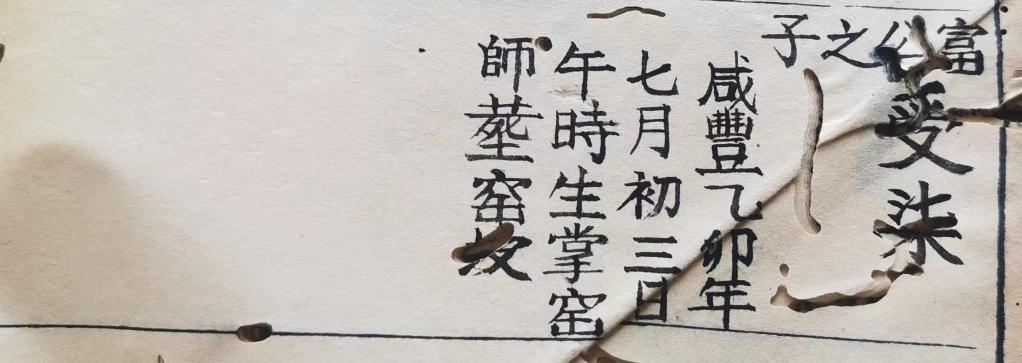 富公之子
受柒
咸豐乙卯年
七月初三日
午時生掌窑
師塟窑